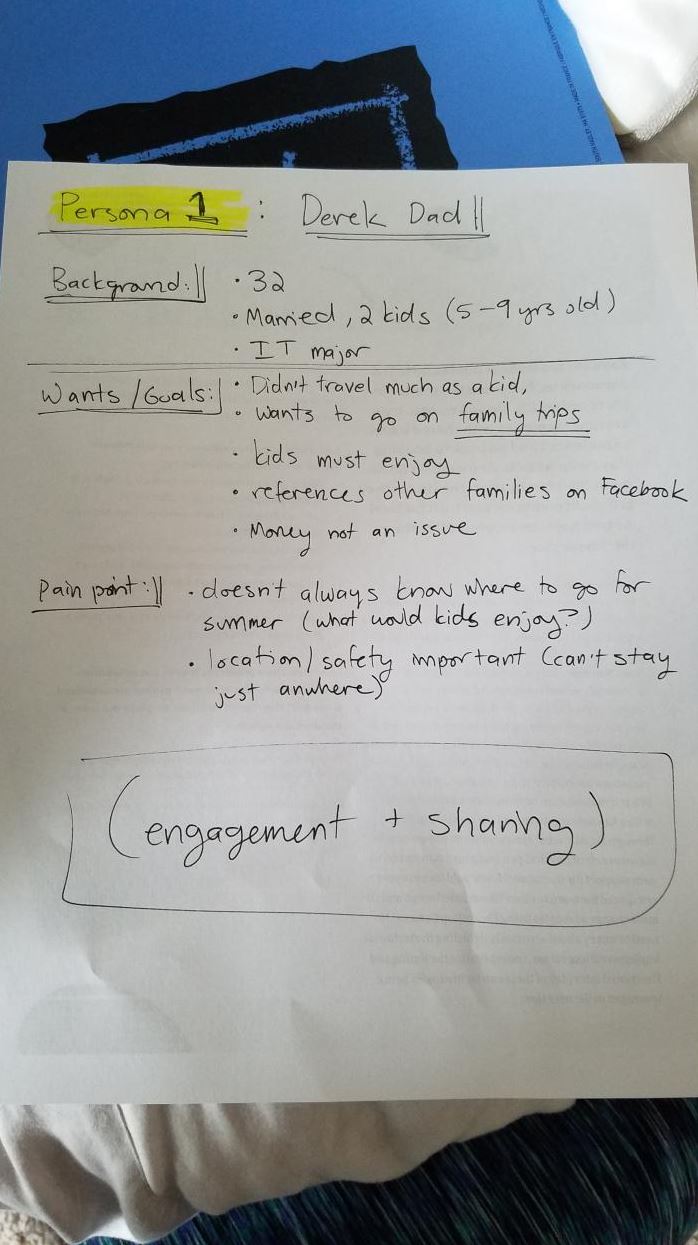 Persona 1 : Derek Dad
Background:
· 32
· Married, 2 kids (5-9 yrs old)
· IT major
Wants/Goals:
· Didn't travel much as a kid,
· wants to go on family trips
· kids must enjoy
· references other families on Facebook
· Money not an issue
Pain point:
· doesn't always know where to go for
summer (what would kids enjoy?)
· location/safety important (can't stay
just anwhere)
(engagement + sharing)